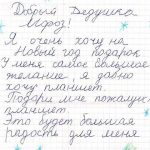 Добрый Дедушка
Мороз!
Я очень хочу на
Новый год подарок
У меня самое большое
желание, я давно
хочу планшет.
Подари мне пожалуйс.
планшет
Это будет большая
радость для меня